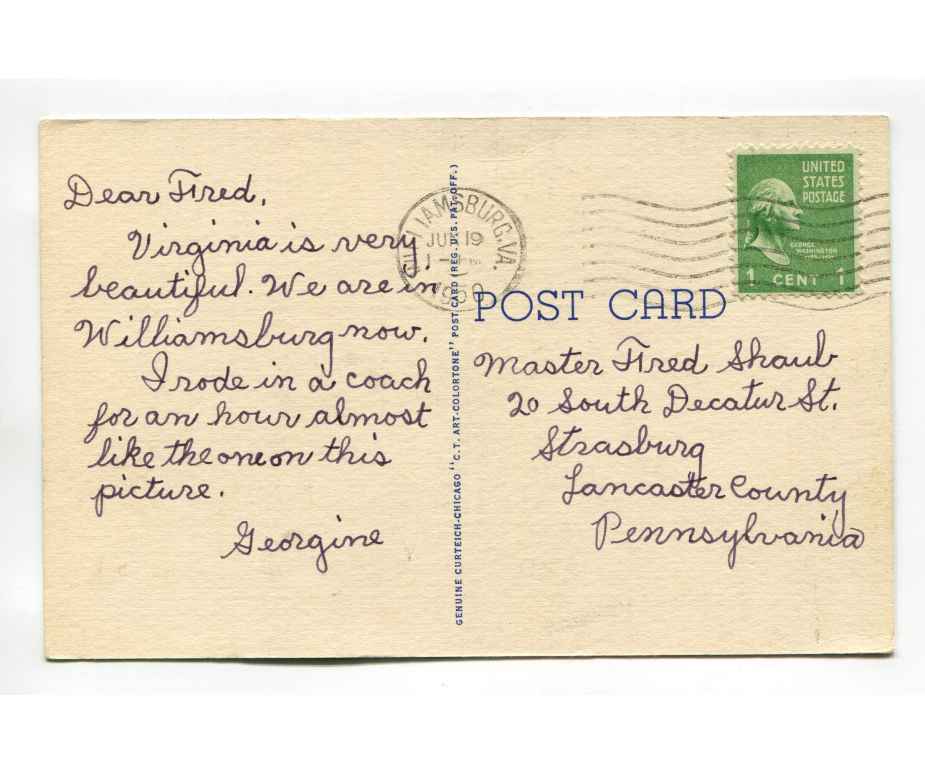 Dear Fred,
Virginia is very
beautiful. We are in
Williamsburg now.
I rode in a coach
for an hour almost
like the one on this
picture.
Georgine
GENUINE CURTEICH-CHICAGO "C.T. ART-COLORTONE" POST CARD (REG. U.S. PAT. OFF.)
WILLIAMSBURG, VA.
19
1950
UNITED
STATES
POSTAGE
GEORGE
WASHINGTON
1 CENT 1
POST CARD
Master Fred Shaub
20 South Decatur St.
Strasburg
Lancaster County
Pennsylvania